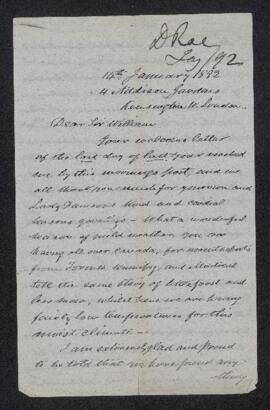 D Rae
Jay/92
14th January 1892
4 Addison Gardens
Kensington W. London.
Dear Sir William
Your welcome letter
of the last day of last year reached
me by this morning's post, and we
all thank you much for yours and
Lady Dawson's kind and cordial
season's greetings – What a wonderful
season of mild weather you are
having all over Canada, for newspapers
from Toronto, Winnipeg, and Montreal
tell the same story of little frost and
less snow, whilst here we are having
fairly low temperatures for this
moist climate. –
I am extremely glad and proud
to be told that